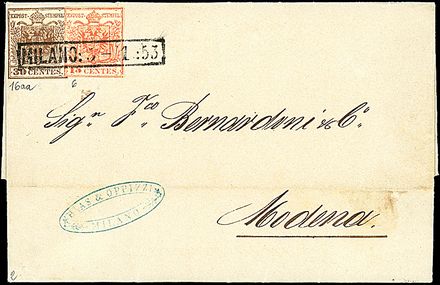 KKPOST-STEMPEL KKPOST-STEMPEL
30 CENTES. 15 CENTES.
MILANO:
16aa 6
Sigr. Fco Bernardoni & Co.
& OPPIZZI
MILANO
Modena.